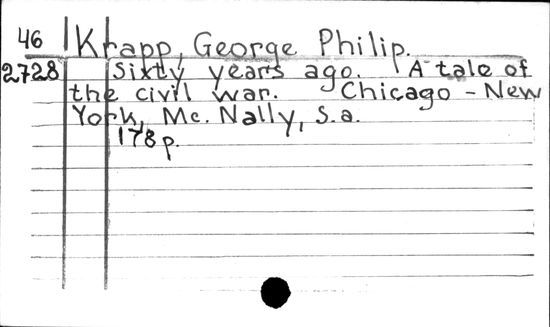 46 Krapp, George Philip.
2728 Sixty years ago. A tale of
the civil war. Chicago - New
York, Mc. Nally, s.a.
178 p.